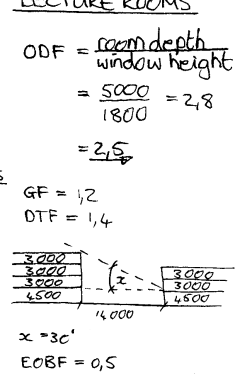 LECTURE ROOMS
ODF = room depth
window height
= 5000
1800
= 2,8
= 2,5
GF = 1,2
DTF = 1,4
3000
3000
3000
4500
x
3000
3000
4500
14000
x = 30°
EOBF = 0,5